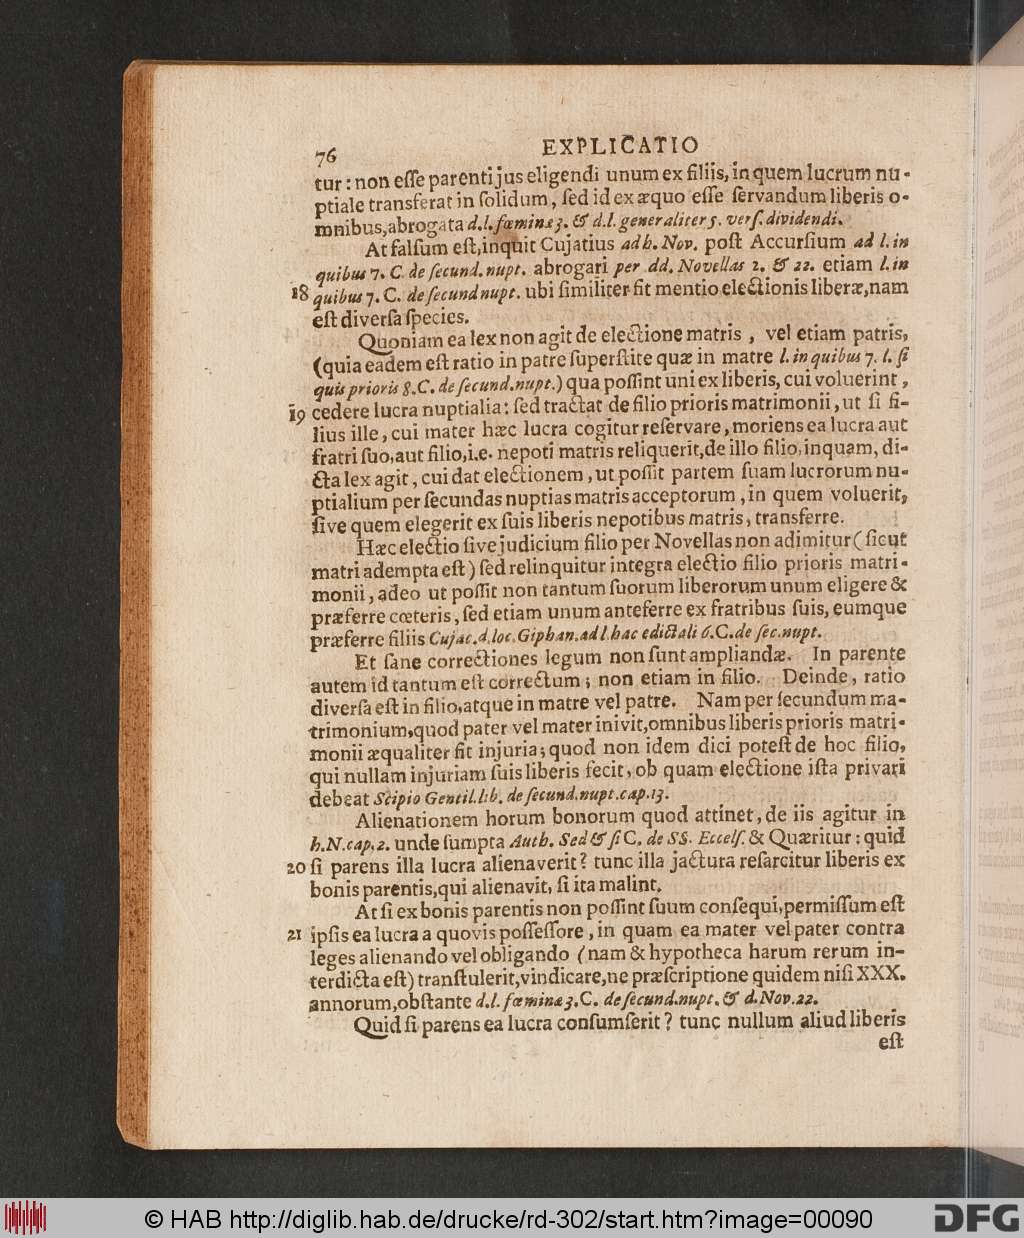 76 EXPLICATIO
tur: non eſſe parenti jus eligendi unum ex filiis, in quem lucrum nu-
ptiale transferat in ſolidum, ſed id ex æquo eſſe ſervandum liberis o-
mnibus, abrogata d. l. fœminæ 3. & d. l. generaliter 5. verſ. dividendi.
At falſum eſt, inquit Cujatius ad h. Nov. poſt Accurſium ad l. in
quibus 7. C. de ſecund. nupt. abrogari per dd. Novellas 2. & 22. etiam l. in
18 quibus 7. C. de ſecund nupt. ubi ſimiliter fit mentio electionis liberæ, nam
eſt diverſa ſpecies.
Quoniam ea lex non agit de electione matris, vel etiam patris,
(quia eadem eſt ratio in patre ſuperſtite quæ in matre l. in quibus 7. l. ſi
quis prioris 8. C. de ſecund. nupt.) qua poſſint uni ex liberis, cui voluerint,
19 cedere lucra nuptialia: ſed tractat de filio prioris matrimonii, ut ſi fi-
lius ille, cui mater hæc lucra cogitur reſervare, moriens ea lucra aut
fratri ſuo, aut filio, i.e. nepoti matris reliquerit, de illo filio, inquam, di-
cta lex agit, cui dat electionem, ut poſſit partem ſuam lucrorum nu-
ptialium per ſecundas nuptias matris acceptorum, in quem voluerit,
ſive quem elegerit ex ſuis liberis nepotibus matris, transferre.
Hæc electio ſive judicium filio per Novellas non adimitur (ſicut
matri adempta eſt) ſed relinquitur integra electio filio prioris matri-
monii, adeo ut poſſit non tantum ſuorum liberorum unum eligere &
præferre cœteris, ſed etiam unum anteferre ex fratribus ſuis, eumque
præferre filiis Cujac. d. loc. Giphan. ad l. hac edictali 6. C. de ſec. nupt.
Et ſane correctiones legum non ſunt ampliandæ. In parente
autem id tantum eſt correctum; non etiam in filio. Deinde, ratio
diverſa eſt in filio, atque in matre vel patre. Nam per ſecundum ma-
trimonium, quod pater vel mater inivit, omnibus liberis prioris matri-
monii æqualiter fit injuria; quod non idem dici poteſt de hoc filio,
qui nullam injuriam ſuis liberis fecit, ob quam electione iſta privari
debeat Scipio Gentil. lib. de ſecund. nupt. cap. 13.
Alienationem horum bonorum quod attinet, de iis agitur in
h. N. cap. 2. unde ſumpta Auth. Sed & ſi C. de SS. Eccleſ. & Quæritur: quid
20 ſi parens illa lucra alienaverit? tunc illa jactura reſarcitur liberis ex
bonis parentis, qui alienavit, ſi ita malint.
At ſi ex bonis parentis non poſſint ſuum conſequi, permiſſum eſt
21 ipſis ea lucra a quovis poſſeſſore, in quam ea mater vel pater contra
leges alienando vel obligando (nam & hypotheca harum rerum in-
terdicta eſt) tranſtulerit, vindicare, ne præſcriptione quidem niſi XXX.
annorum, obſtante d. l. fœminæ 3. C. de ſecund. nupt. & d. Nov. 22.
Quid ſi parens ea lucra conſumſerit? tunc nullum aliud liberis
eſt
© HAB http://diglib.hab.de/drucke/rd-302/start.htm?image=00090
DFG